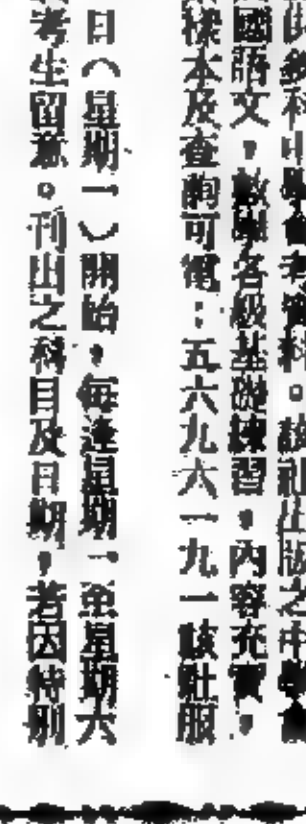 此類科中學會考資科。該社出版之中學
國語文,數學各級基礎練習,內容充實,
樣本及查詢可電:五六九六一九一該社服
日(星期一)開始,每逢星期一至星期六
考生留意。刊出之科目及日期,若因特別